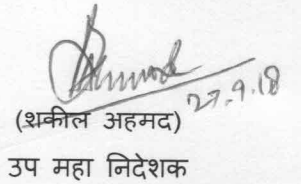 27.9.18
(शकील अहमद)
उप महा निदेशक